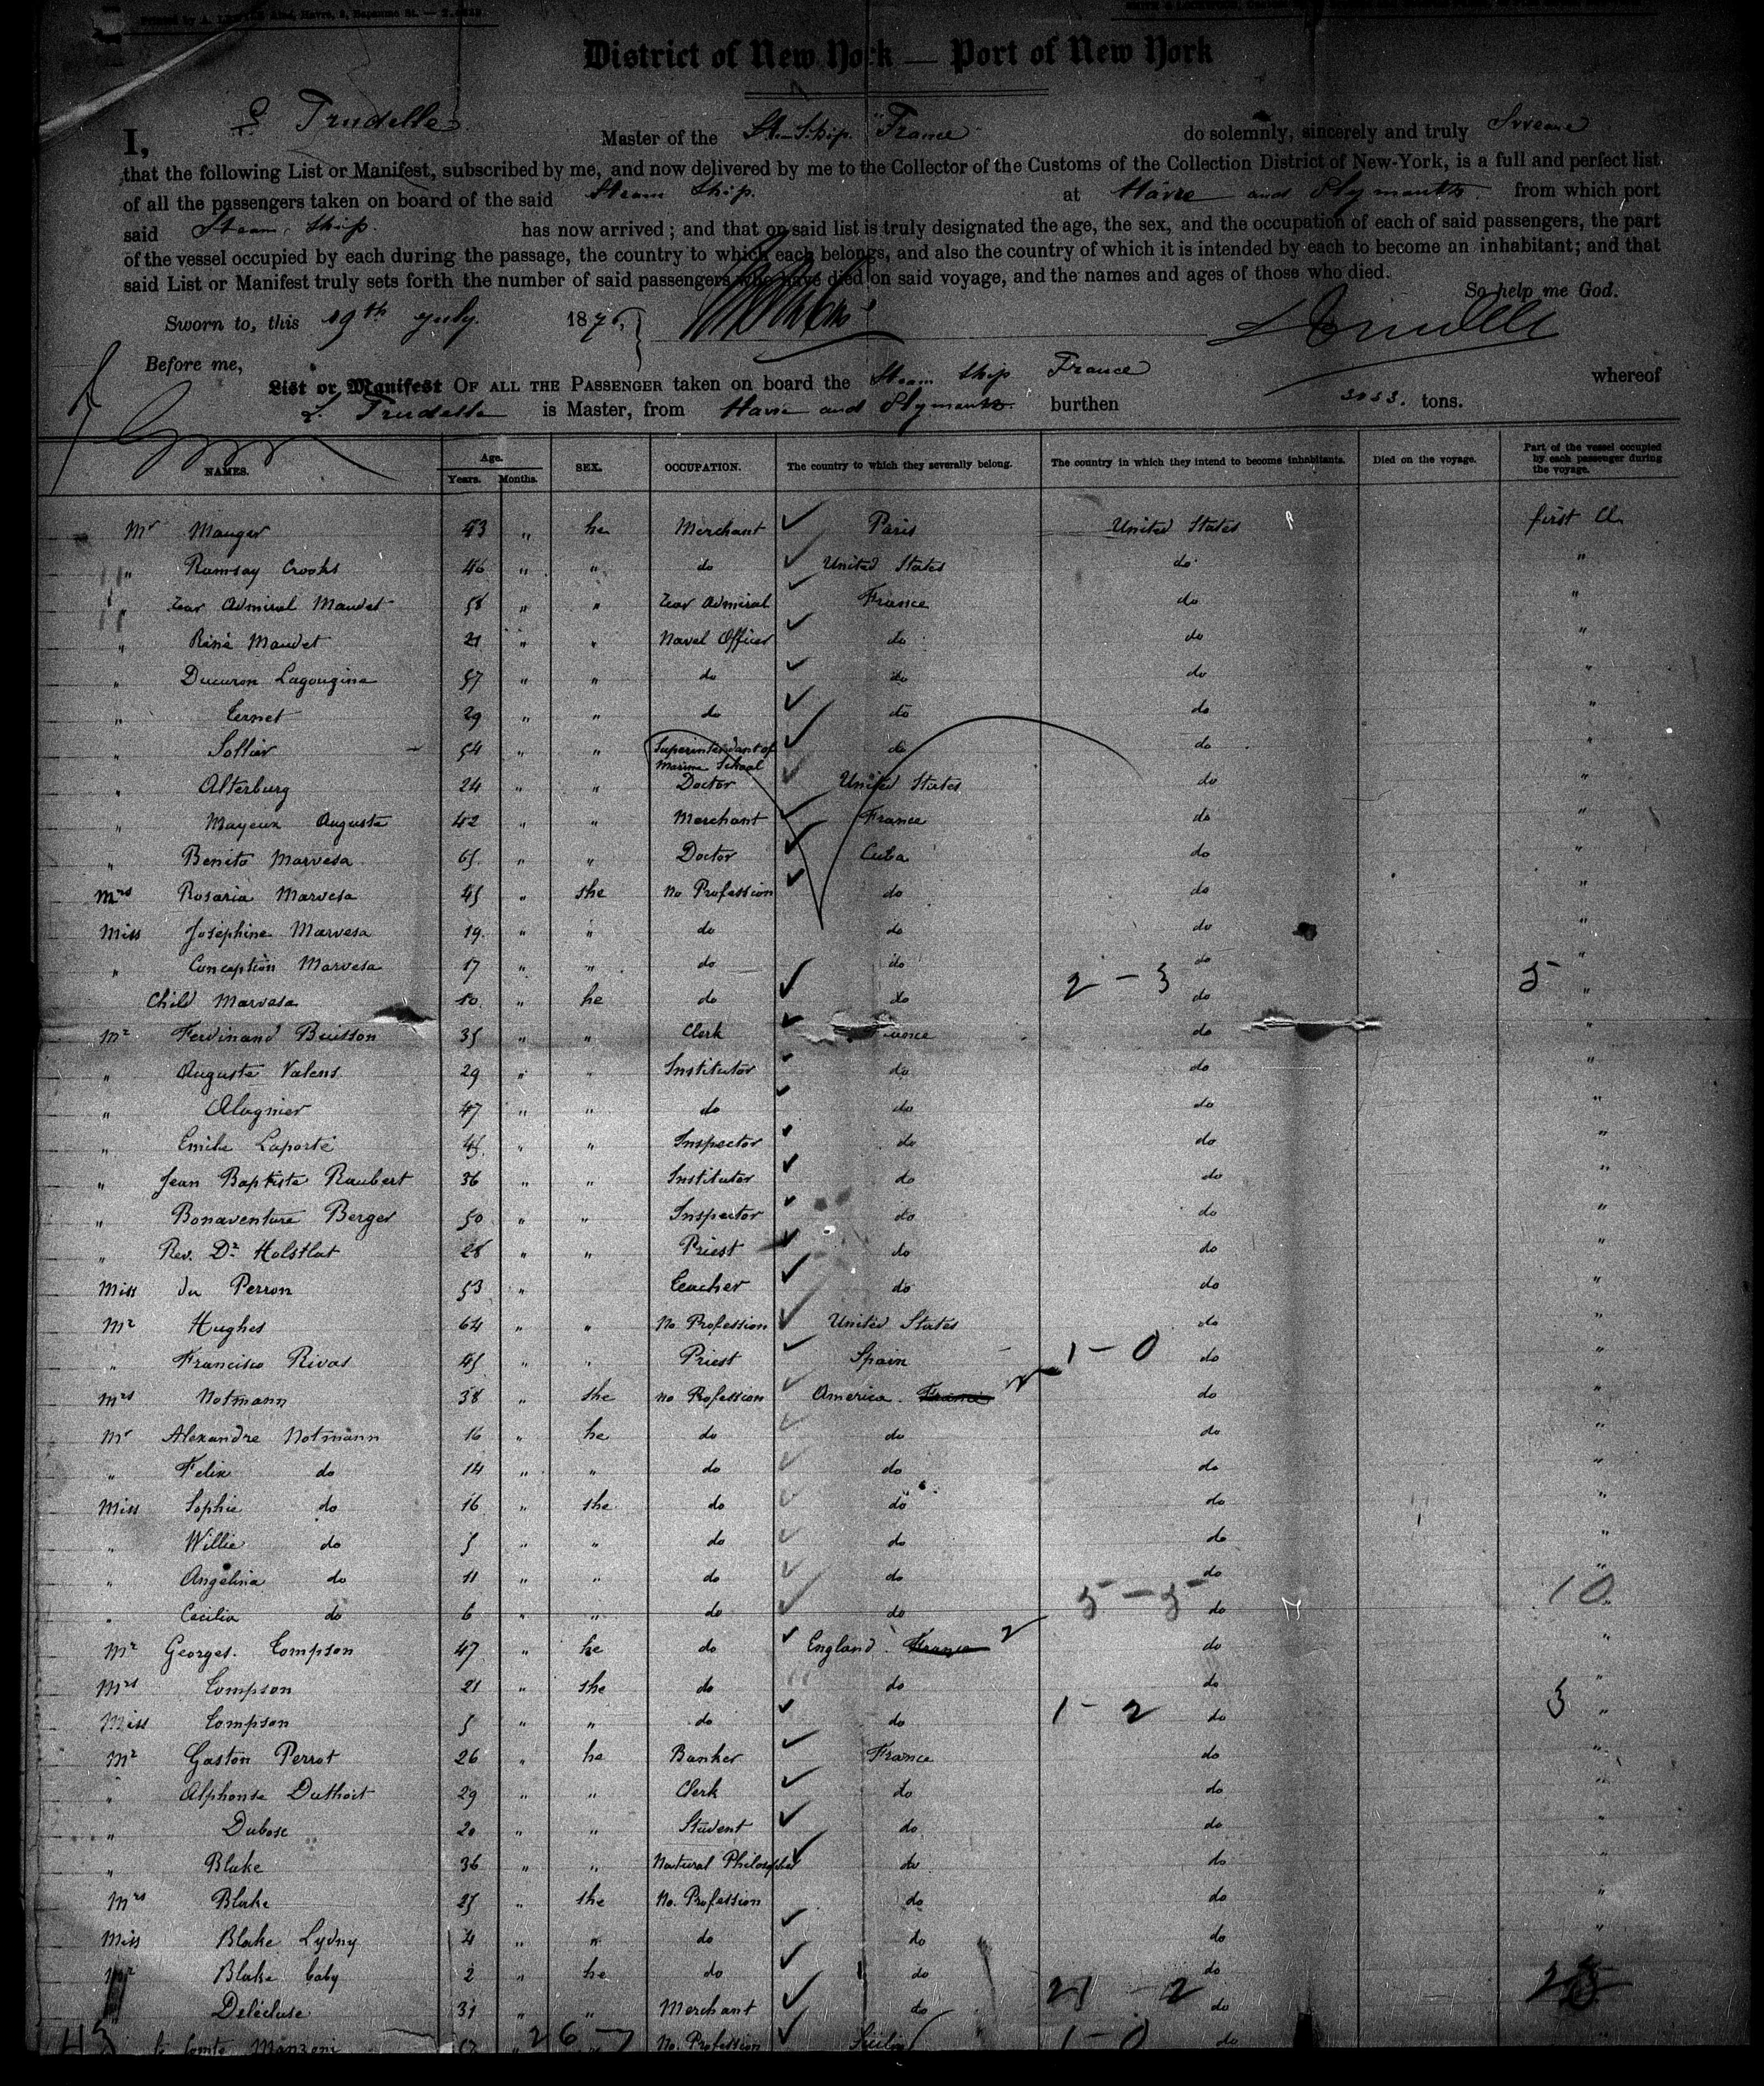 Printed by A. Aîné, Havre,
District of New York — Port of New York
I, L Trudelle Master of the St. Ship. "France" do solemnly, sincerely and truly Swear
that the following List or Manifest, subscribed by me, and now delivered by me to the Collector of the Customs of the Collection District of New-York, is a full and perfect list
of all the passengers taken on board of the said Steam Ship. at Hâvre and Plymouth from which port
said Steam Ship. has now arrived; and that on said list is truly designated the age, the sex, and the occupation of each of said passengers, the part
of the vessel occupied by each during the passage, the country to which each belongs, and also the country of which it is intended by each to become an inhabitant; and that
said List or Manifest truly sets forth the number of said passengers who have died on said voyage, and the names and ages of those who died.
So help me God.
Sworn to, this 19th July. 1876, Trudelle
Before me,
List or Manifest OF ALL THE PASSENGER taken on board the Steam Ship France whereof
L Trudelle is Master, from Havre and Plymouth burthen tons.
NAMES. Age. Years. Months. SEX. OCCUPATION. The country to which they severally belong. The country in which they intend to become inhabitants. Died on the voyage. Part of the vessel occupied by each passenger during the voyage.
Mr Mauger 43 " he Merchant Paris United States first Cl.
" Ramsay Crooks 46 " " do United States do "
" Rear Admiral Maudet 58 " " Rear Admiral France do "
" René Maudet 21 " " Naval Officer do do "
" Ducuron Lagougine 57 " " do do do "
" Ternet 29 " " do do do "
" Sollier 54 " " Superintendant of Marine School do do "
" Alterburg 24 " " Doctor United States do "
" Mayeux Auguste 42 " " Merchant France do "
" Benito Marvesa 65 " " Doctor Cuba do "
Mrs Rosaria Marvesa 45 " she No Profession do do "
Miss Josephine Marvesa 19 " " do do do "
" Conception Marvesa 17 " " do do do "
2 - 3 5
Child Marvesa 10 " he do do do "
Mr Ferdinand Buisson 35 " " Clerk France do "
" Auguste Valens 29 " " Institutor do do "
" Alagnier 47 " " do do do "
" Emile Laporte " " Inspector do do "
" Jean Baptiste Raubert 36 " " Institutor do do "
" Bonaventure Berger 50 " " Inspector do do "
" Rev. Dr Holstlat 28 " " Priest do do "
Miss du Perron 53 " Teacher do do "
Mr Hughes 64 " " No Profession United States do "
" Francisco Rivas 45 " " Priest Spain 1 - 0 do "
Mrs Notmann 38 " she No Profession America France do "
Mr Alexandre Notmann 16 " he do do do "
" Felix do 14 " " do do do "
Miss Sophie do 16 " she do do do "
" Willie do 5 " " do do do "
" Angelina do 11 " " do do do "
" Cecilia do 6 " " do do 5 - 5 do 10 "
Mr Georges Tompson 47 " he do England France do "
Mrs Tompson 21 " she do do do "
Miss Tompson 5 " " do do 1 - 2 do 3 "
Mr Gaston Perrot 26 " he Banker France do "
" Alphonse Duthoit 29 " " Clerk do do "
" Dubosc 20 " " Student do do "
" Blake 36 " " Natural Philosopher do do "
Mrs Blake 25 " she No. Profession do do "
Miss Blake Lydny 4 " " do do do "
Mr Blake baby 2 " he do do do
21 - 2
Delécluse 31 " " Merchant do do
43 le Comte Manzoni 26 - 7 No. Profession 1 - 0 do "